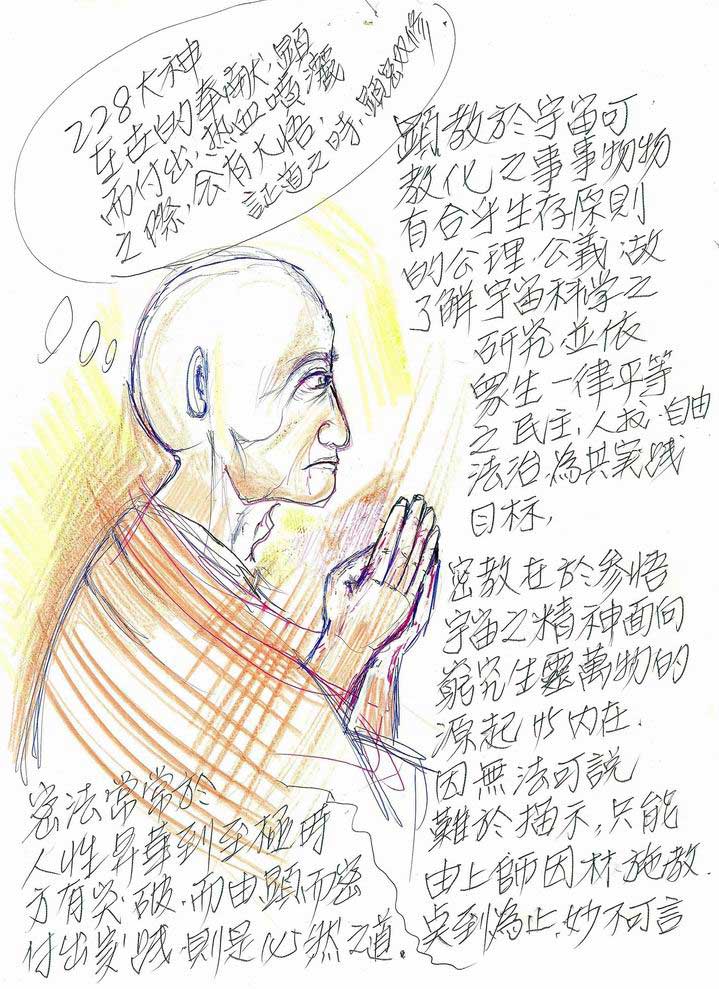 228大神
在世的奉献,顕
而付出,热血喷灑
之際,会有大悟,
証道之時,顕密双修.
顕教於宇宙可
教化之事事物物
有合乎生存原則
的公理.公義.做
了解宇宙科学之
研究並依
眾生一律平等
之民主,人权.自由
法治為其实践
目标,
密教在於参悟
宇宙之精神面向
窮究生靈萬物的
源起 内在.
因無法可說
難於描示,只能
由上師因材施教.
点到為止,妙不可言
密法常常於
人性昇華到至極時
方有突破.而由顕而密
付出实践.則是必然之道.